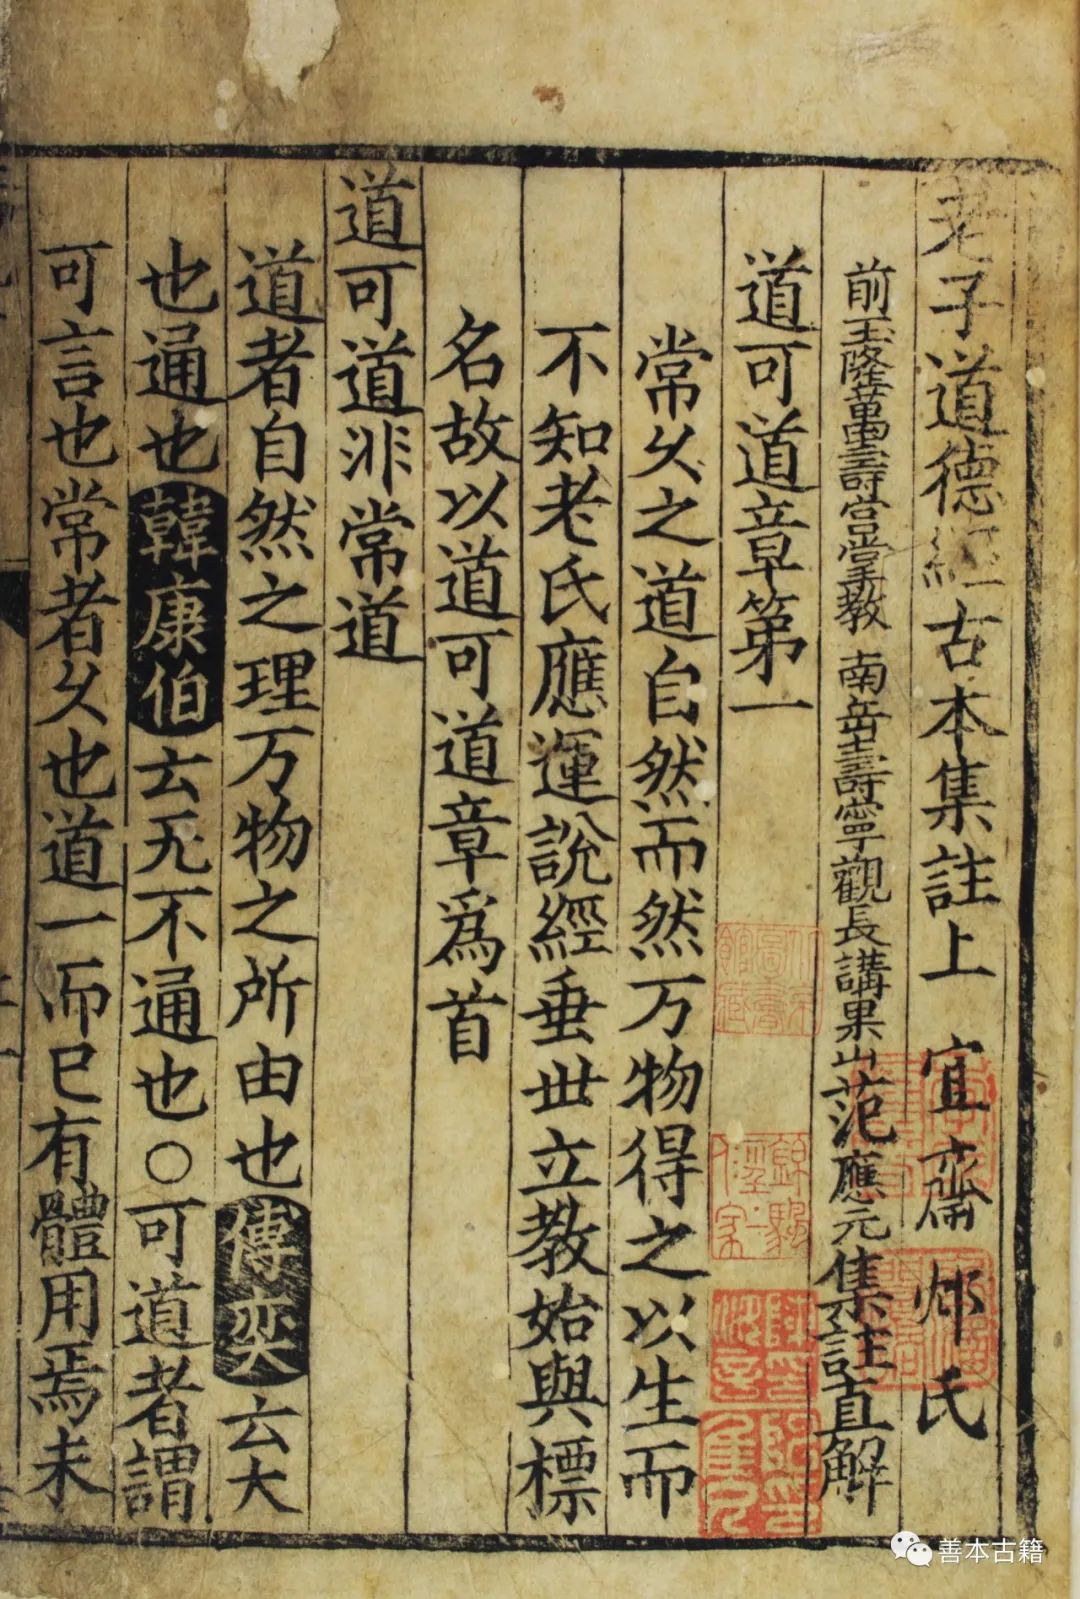 老子道德經古本集註上 宜齋 邲氏
前玉隆萬壽宮掌教 南岳壽寧觀長講果山范應元集註直解
道可道章第一
常久之道自然而然万物得之以生而
不知老氏應運說經垂世立教始與標
名故以道可道章爲首
道可道非常道
道者自然之理万物之所由也傅奕云大
也通也韓康伯云无不通也○可道者謂
可言也常者久也道一而已有體用焉未
善本古籍